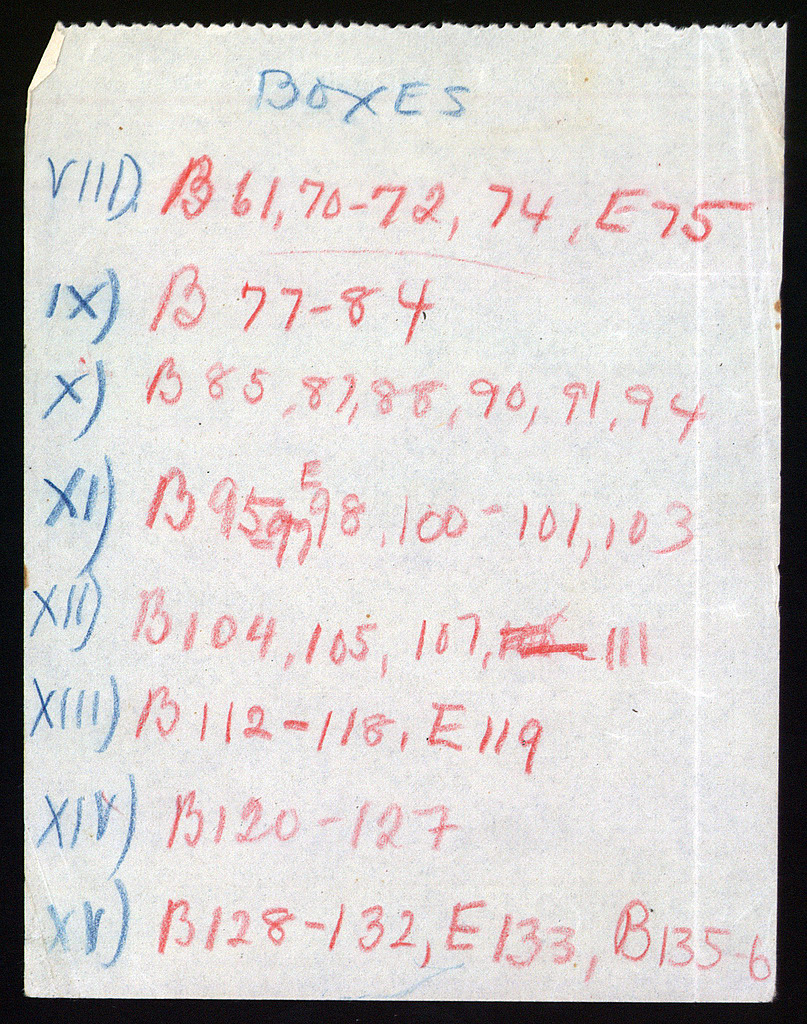 BOXES
VIII) B 61, 70-72, 74, E 75
IX) B 77-84
X) B 85, 87, 88, 90, 91, 94
XI) B 95, 97, E 98, 100-101, 103
XII) B 104, 105, 107, 111
XIII) B 112-118, E 119
XIV) B 120-127
XV) B 128-132, E 133, B 135-6